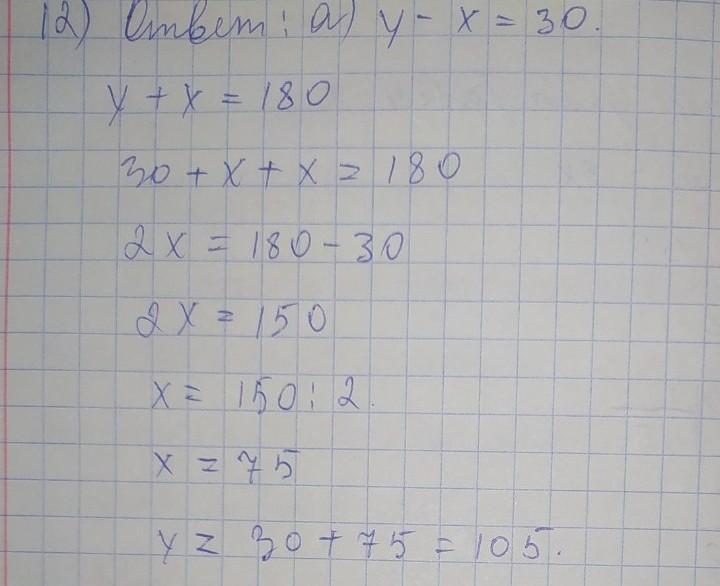 12) Ответ: а) y - x = 30.
y + x = 180
30 + x + x = 180
2x = 180 - 30
2x = 150
x = 150 : 2.
x = 75
y = 30 + 75 = 105.